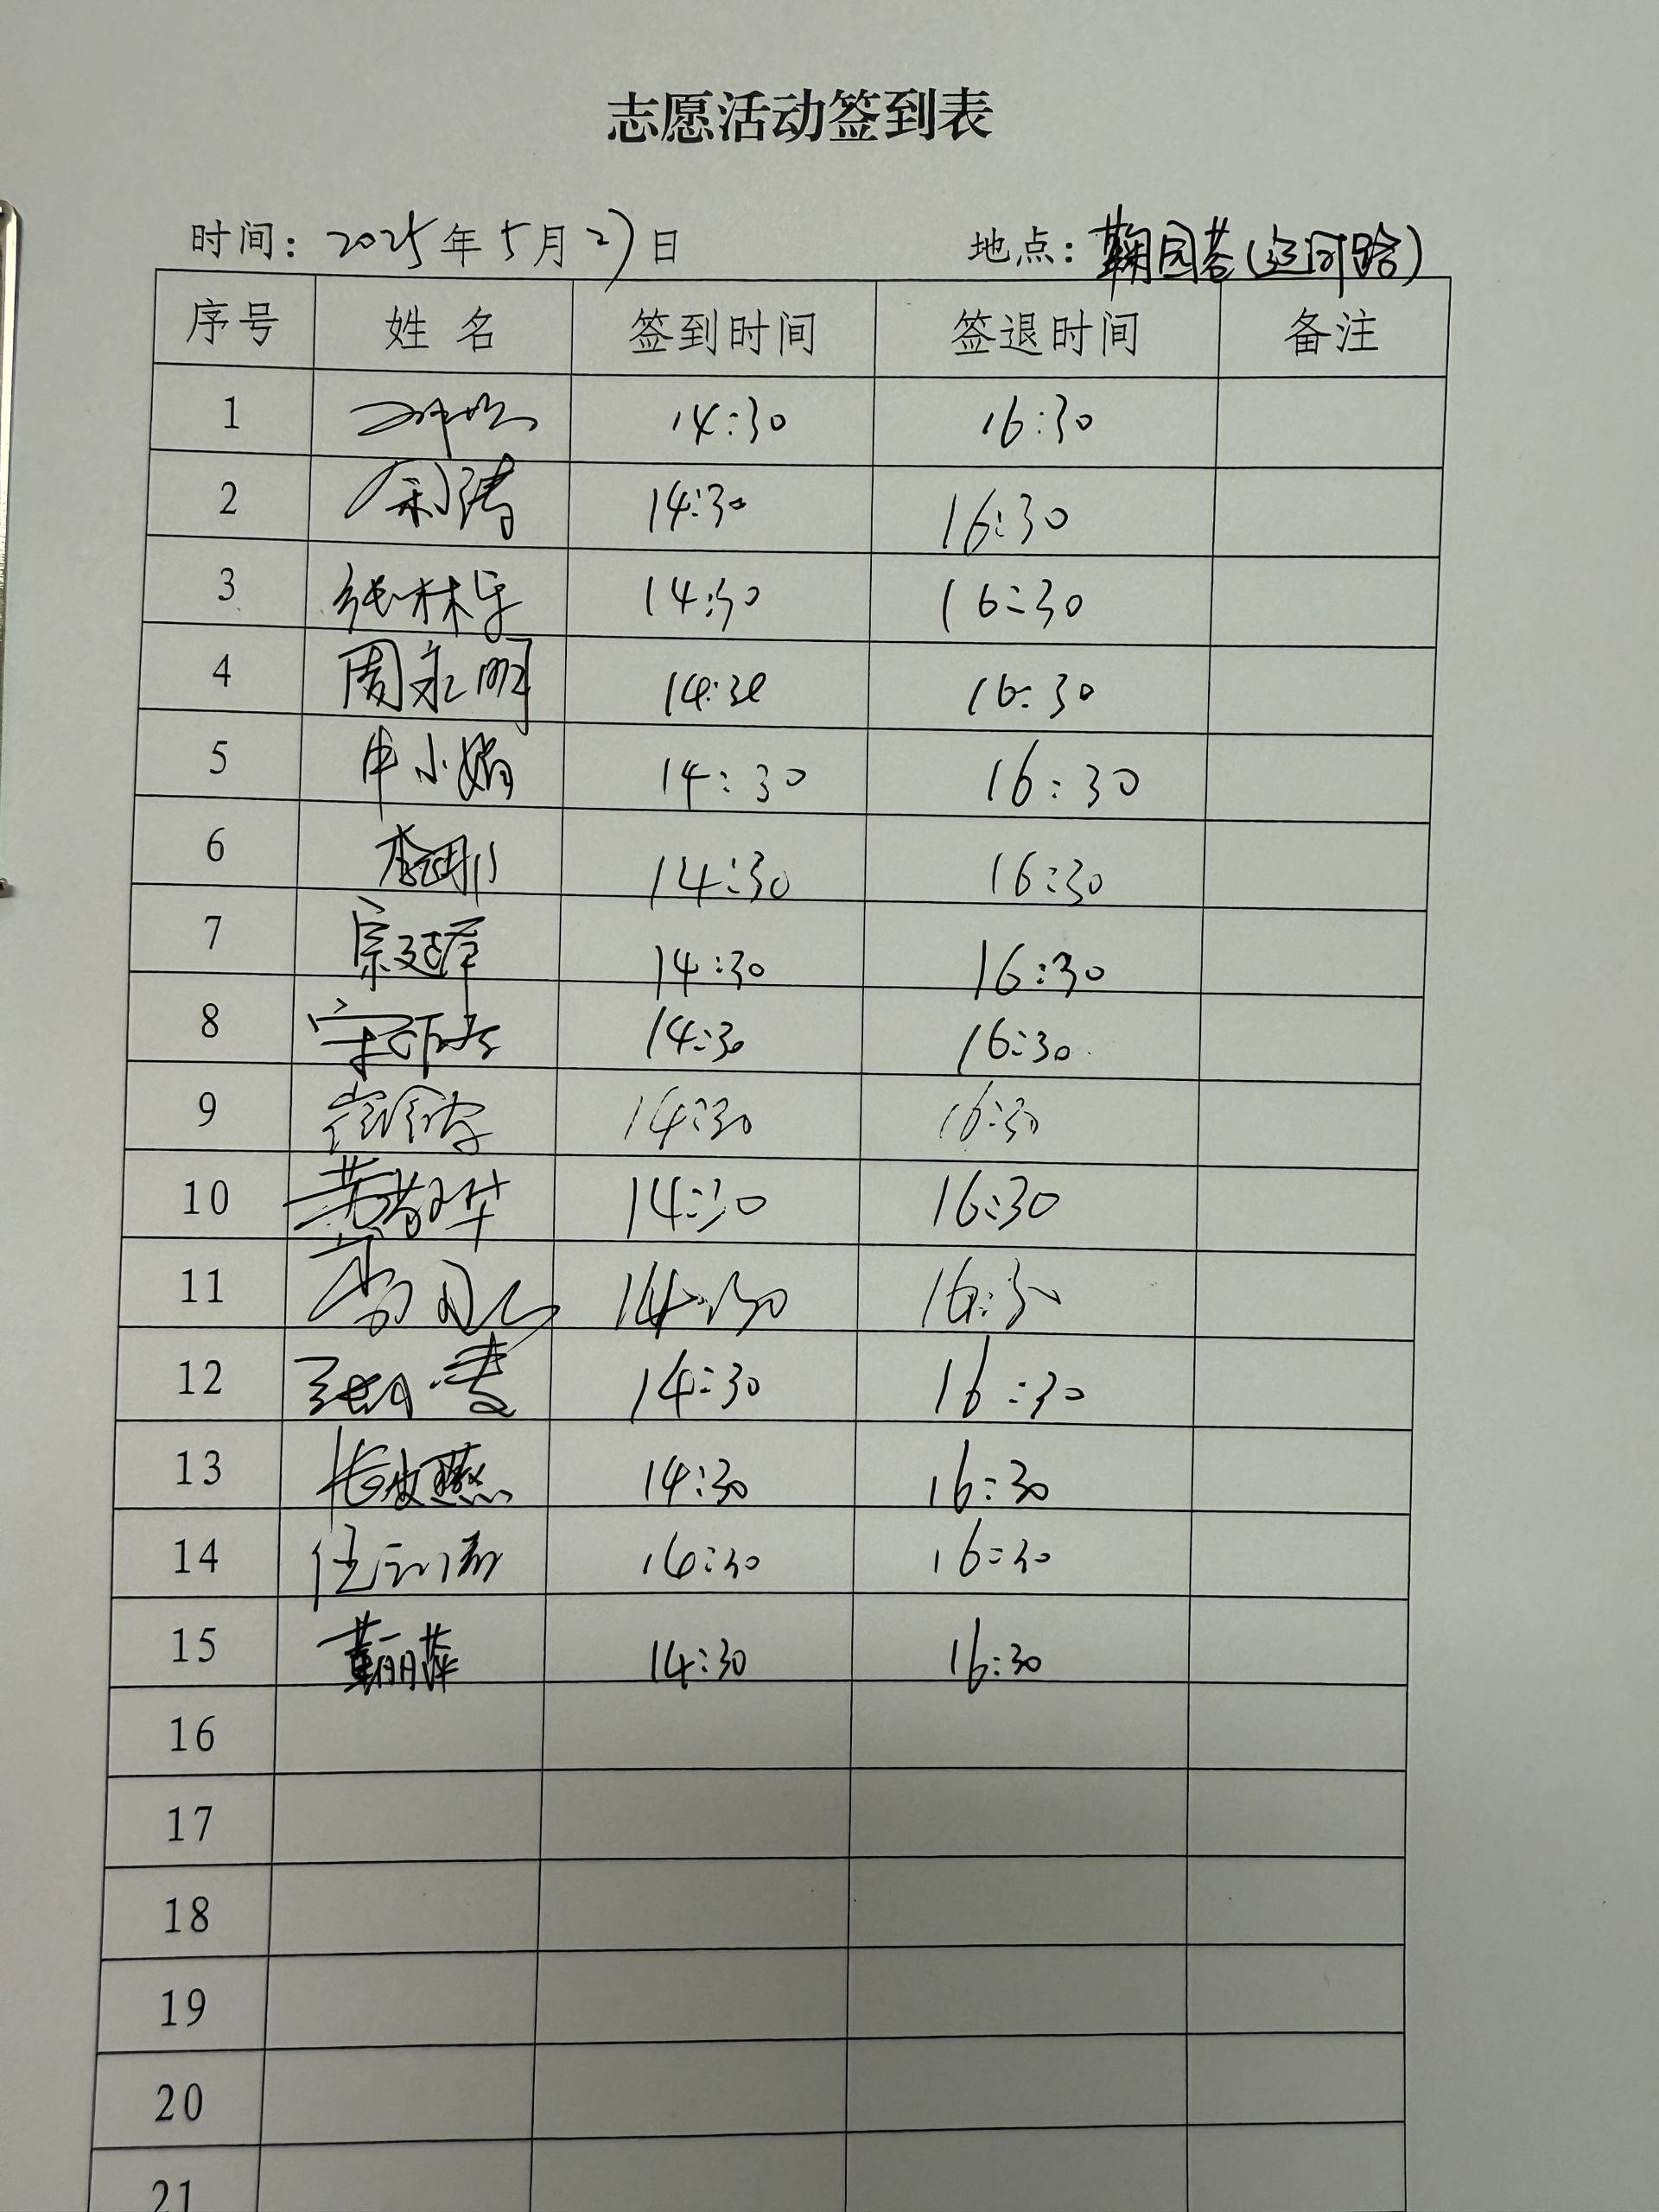 志愿活动签到表
时间：2025年5月27日 地点：鞠园巷(运河路)
序号 姓名 签到时间 签退时间 备注
1 14:30 16:30
2 14:30 16:30
3 张林 14:30 16:30
4 周永明 14:30 16:30
5 申小娟 14:30 16:30
6 14:30 16:30
7 宗廷 14:30 16:30
8 14:30 16:30
9 14:30 16:30
10 黄敬华 14:30 16:30
11 14:30 16:30
12 14:30 16:30
13 14:30 16:30
14 16:30 16:30
15 14:30 16:30
16
17
18
19
20
21